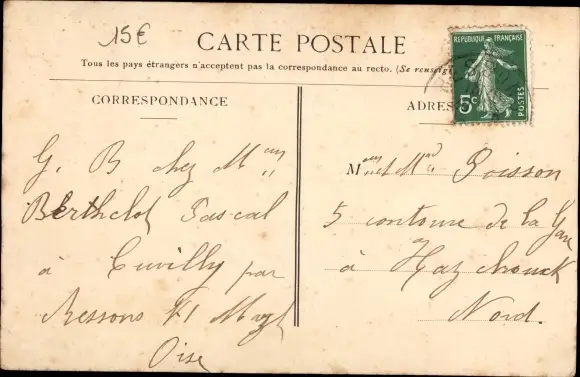 15€
CARTE POSTALE
Tous les pays étrangers n'acceptent pas la correspondance au recto. (Se renseig
CORRESPONDANCE
ADRES
REPUBLIQUE FRANÇAISE
5c
POSTES
G. B chez M
Berthelot Pascal
à Cuvilly par
Ressons
Oise
M et Mad Poisson
5 contour de la Gare
à Hazebrouck
Nord.